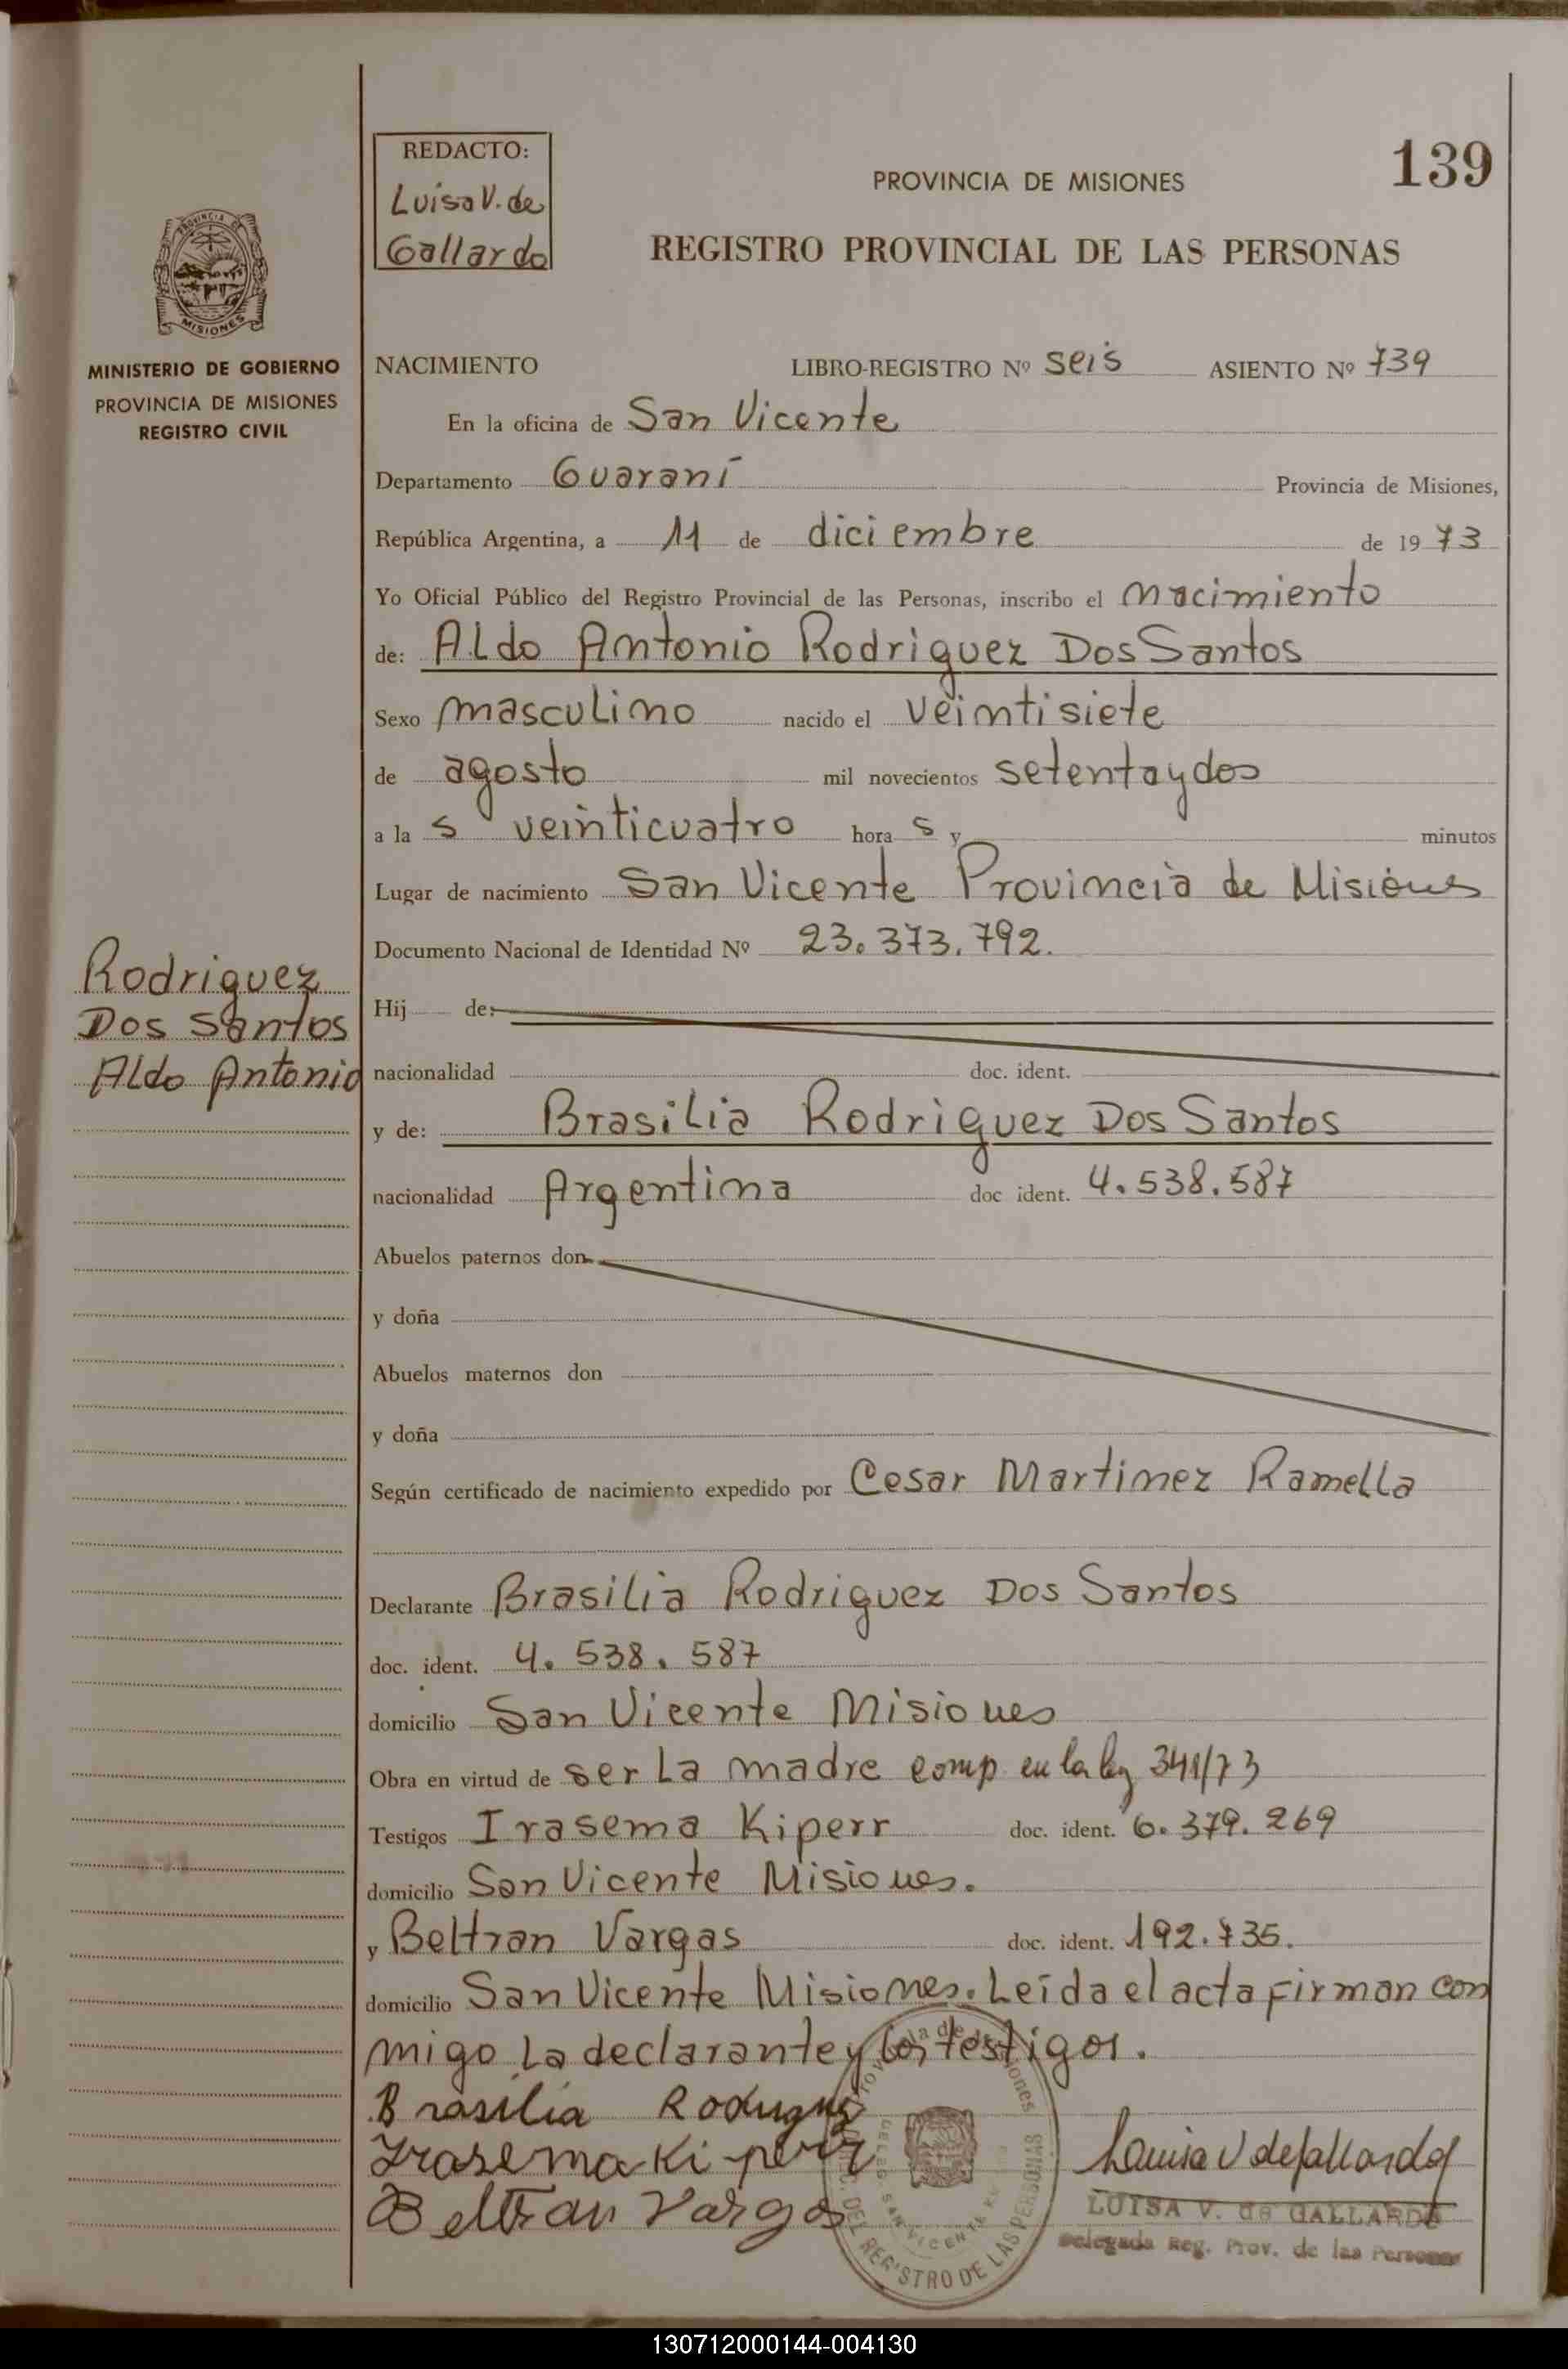 REDACTO:
Luisa V. de
Gallardo
139
PROVINCIA DE MISIONES
REGISTRO PROVINCIAL DE LAS PERSONAS
PROVINCIA DE
MISIONES
MINISTERIO DE GOBIERNO
PROVINCIA DE MISIONES
REGISTRO CIVIL
NACIMIENTO LIBRO-REGISTRO Nº seis ASIENTO Nº 739
En la oficina de San Vicente
Departamento Guaraní Provincia de Misiones,
República Argentina, a 11 de diciembre de 1973
Yo Oficial Público del Registro Provincial de las Personas, inscribo el nacimiento
de: Aldo Antonio Rodriguez Dos Santos
Sexo masculino nacido el veintisiete
de agosto mil novecientos setentaydos
a la s veinticuatro hora s y minutos
Lugar de nacimiento San Vicente Provincia de Misiones
Documento Nacional de Identidad Nº 23.373.792.
Rodriguez
Dos Santos
Aldo Antonio
Hij de:
nacionalidad doc. ident.
y de: Brasilia Rodriguez Dos Santos
nacionalidad Argentina doc ident. 4.538.587
Abuelos paternos don
y doña
Abuelos maternos don
y doña
Según certificado de nacimiento expedido por Cesar Martinez Ramella
Declarante Brasilia Rodriguez Dos Santos
doc. ident. 4.538.587
domicilio San Vicente Misiones
Obra en virtud de ser La madre comp. en la ley 341/73
Testigos Irasema Kiperr doc. ident. 6.379.269
domicilio San Vicente Misiones.
y Beltran Vargas doc. ident. 192.735.
domicilio San Vicente Misiones. Leída el acta firman con
migo La declarante y los testigos.
Brasilia Rodriguez
Irasema Kiperr
Beltran Vargas
Luisa V de Gallardo
LUISA V. de GALLARDO
Delegada Reg. Prov. de las Personas
SAN VICENTE
REGISTRO DE LAS PERSONAS
130712000144-004130